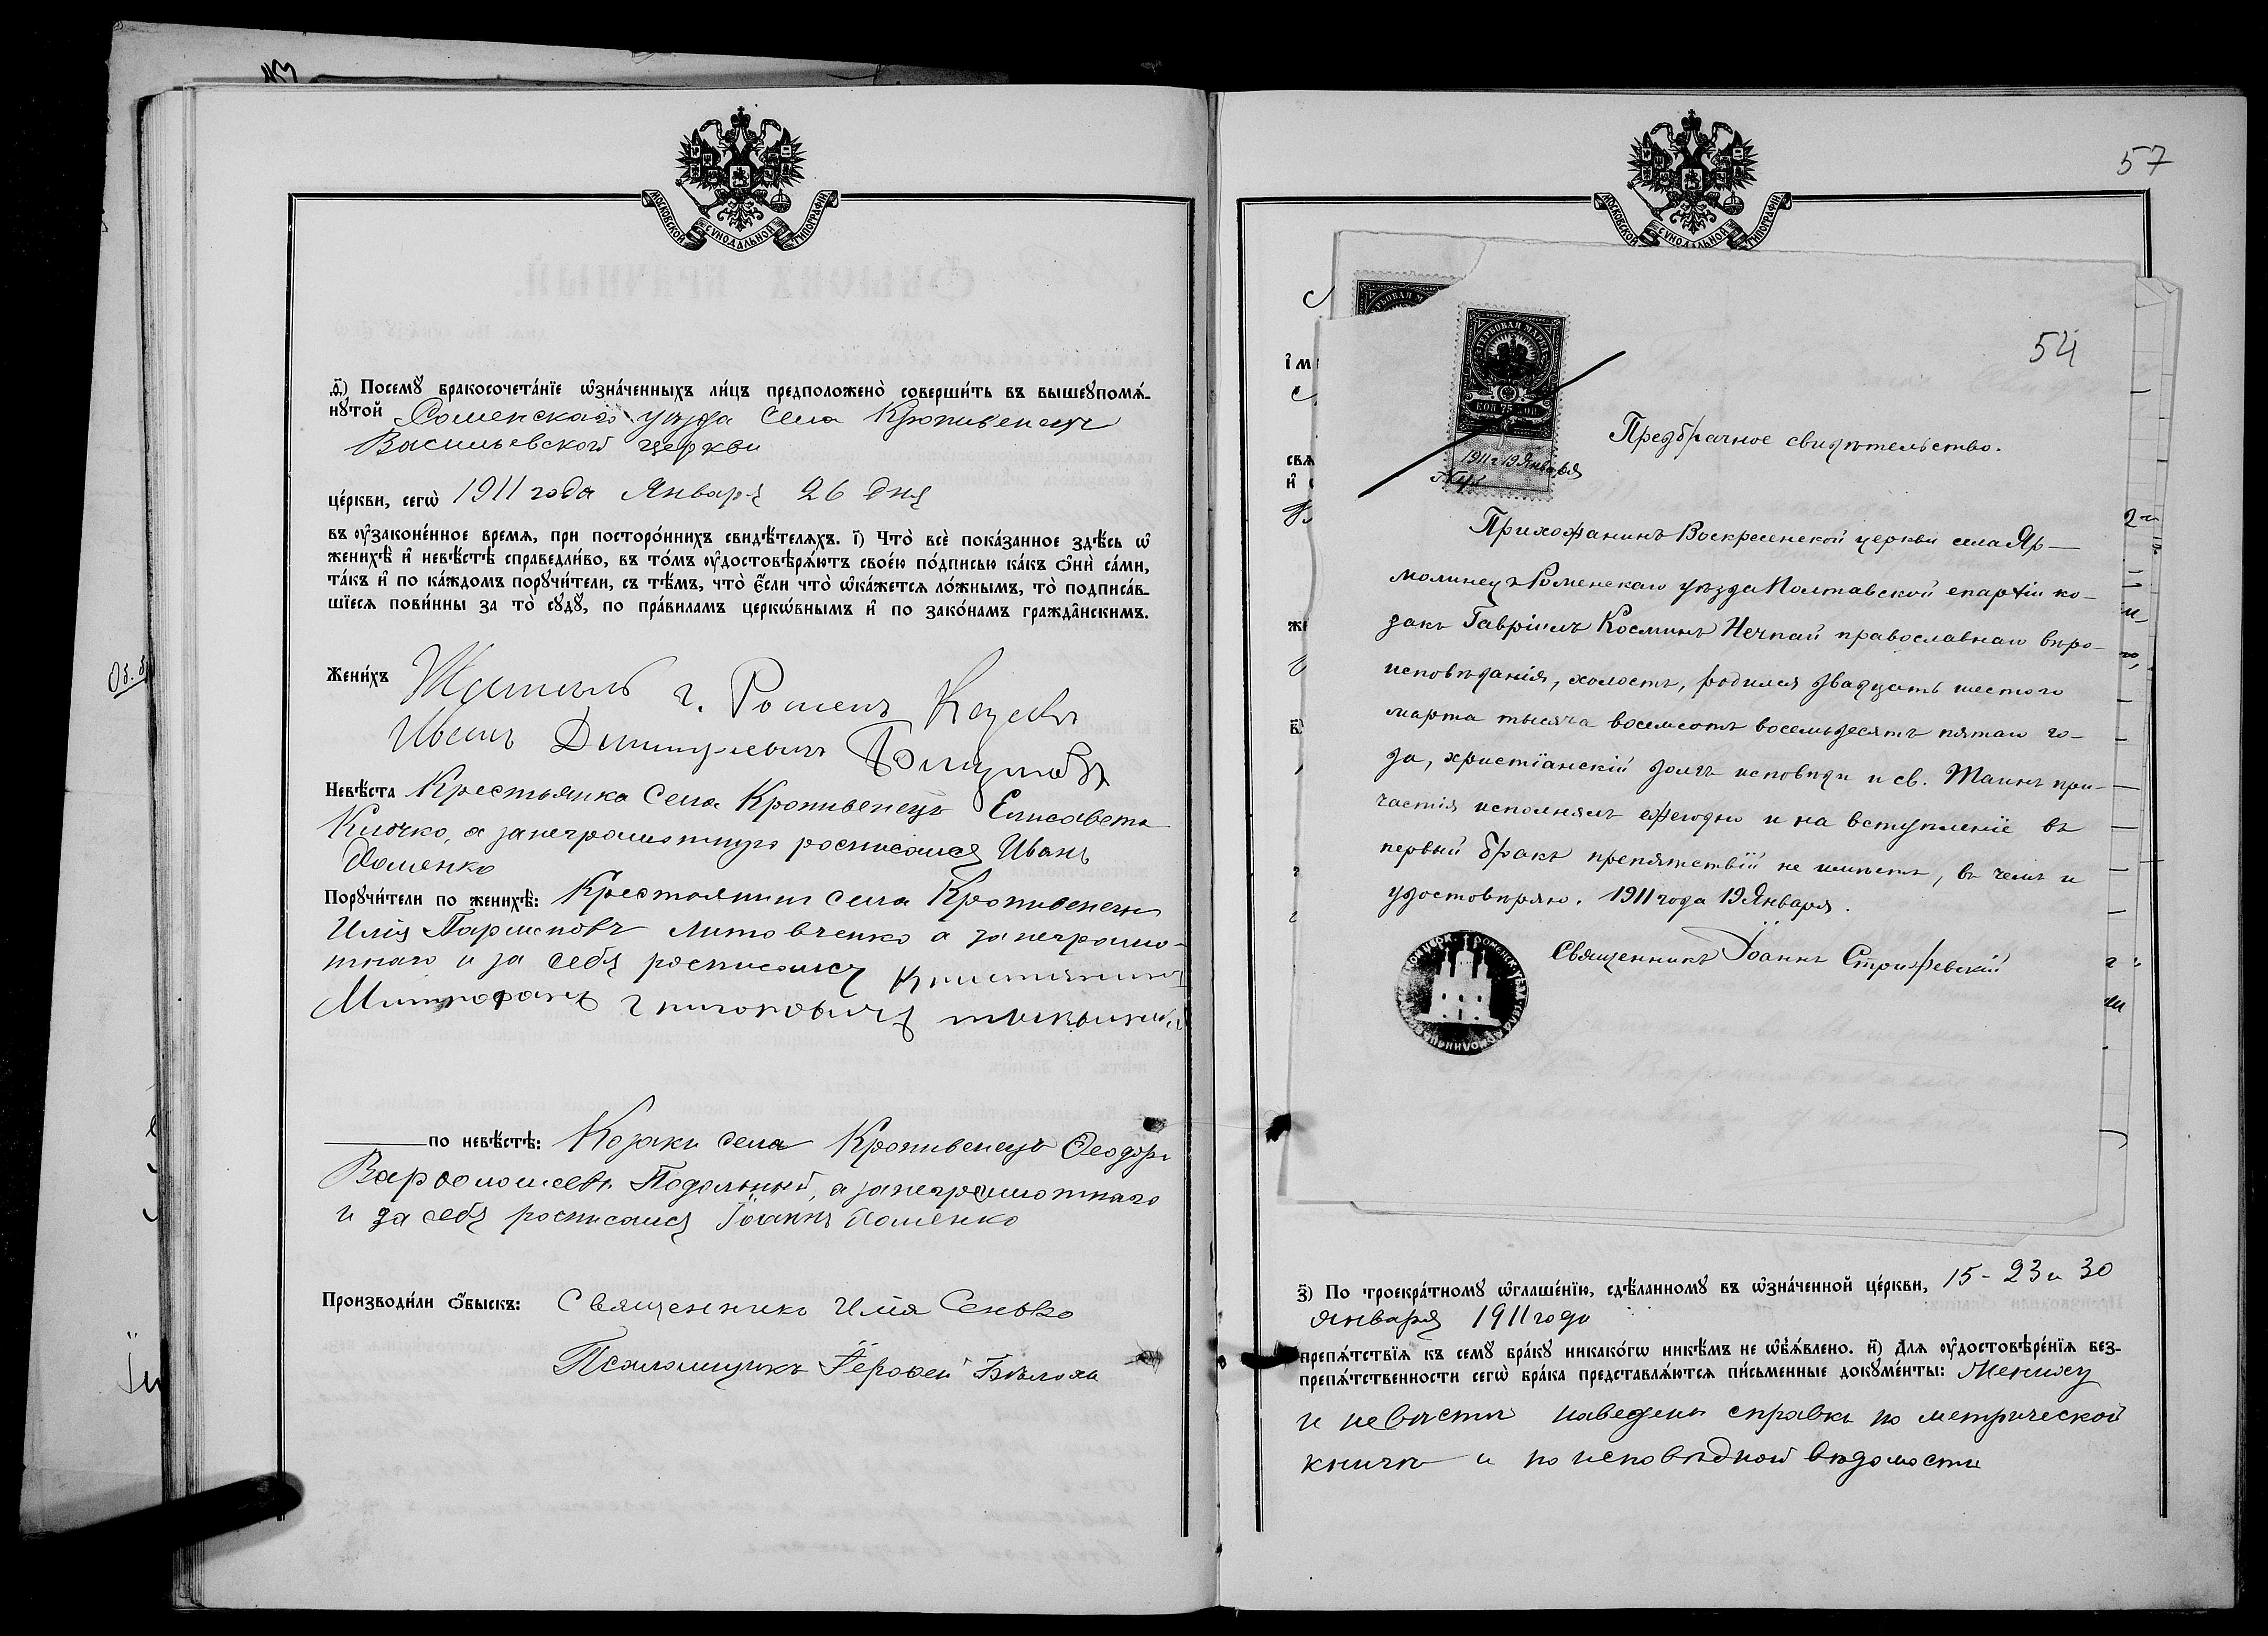 МОСКОВСКОЙ СѴНОДАЛЬНОЙ ТИПОГРАФІИ
ѳ҃) Посемꙋ бракосочета́нїе ѡ҆зна́ченныхъ ли́цъ предположено̀ соверши́ть въ вышеꙋпомѧ́-
нꙋтой Роменскаго уѣзда села Кропивенецъ
Васильевской церкви
це́ркви, сегѡ̀ 1911 года Января 26 дня
въ ᲂу҆законе́нное время, при посторо́ннихъ свидѣ́телѧхъ. і҃) Что̀ всѐ пока́занное здѣ́сь ѡ҆
женихѣ̀ и҆ невѣ́стѣ справедли́во, въ то́мъ ᲂу҆достовѣрѧ́ютъ свое́ю по́дписью ка́къ ѻ҆нѝ са́ми,
та́къ и҆ по ка́ждомъ порꙋчи́тели, съ тѣ́мъ, что̀ є҆́сли что̀ ѡ҆ка́жется ло́жнымъ, то̀ подписа́в-
шїеся пови́нны за то̀ сꙋдꙋ̀, по пра́виламъ церкѡ́внымъ и҆ по зако́намъ гражда̂нскимъ.
Жени́хъ г. Роменъ Козакъ
Иванъ
Невѣ́ста Крестьянка села Кропивенецъ Елисавета
Клочко, а за неграмотную росписался Иванъ
Хоменко
Порꙋчи́тели по женихѣ̀: села Кропивенецъ
Илія Литовченко а за неграмо-
тнаго и за себя росписался
Митрофанъ
по невѣ́стѣ: Козаки села Кропивенецъ Ѳеодоръ
Варѳоломеевъ Подольный, а за неграмотнаго
и за себя росписался Іоаннъ Хоменко
Производи́ли ѻ҆́быскъ: Священникъ Илія Сенько
Псаломщикъ Іероѳей
57
МОСКОВСКОЙ СѴНОДАЛЬНОЙ ТИПОГРАФІИ
54
ГЕРБОВАЯ МАРКА
КОП 75 КОП
1911 г 19 Января
Предбрачное свидѣтельство.
Прихожанинъ Воскресенской церкви села Яр-
молинецъ Роменскаго уѣзда Полтавской епархіи ко-
закъ Гавріилъ Косминъ Нечпай православнаго вѣро-
исповѣданія, холостъ, родился двадцать шестого
марта тысяча восемсотъ восемьдесятъ пятаго го-
да, христіанскій долгъ исповѣди и св. Таинъ при-
частія исполнялъ ежегодно и на вступленіе въ
первый бракъ препятствій не имѣетъ, въ чемъ и
удостовѣряю. 1911 года 19 Января.
Священникъ Іоаннъ
з҃) По троекра́тномꙋ ѡ҆глаше́нїю, сдѣ́ланномꙋ въ ѡ҆зна́ченной це́ркви, 15 - 23 и 30
января 1911 года
препѧ́тствїѧ къ семꙋ̀ бра́кꙋ никако́гѡ никѣ́мъ не ѡ҆б̾ѧ́влено. и҃) Для ᲂу҆достовѣре́нїѧ без-
препѧ́тственности сегѡ̀ бра́ка представлѧ́ются пи́сьменные докꙋме́нты: Жениху
и невѣстѣ наведены справки по метрической
книгѣ и по исповѣдной вѣдомости